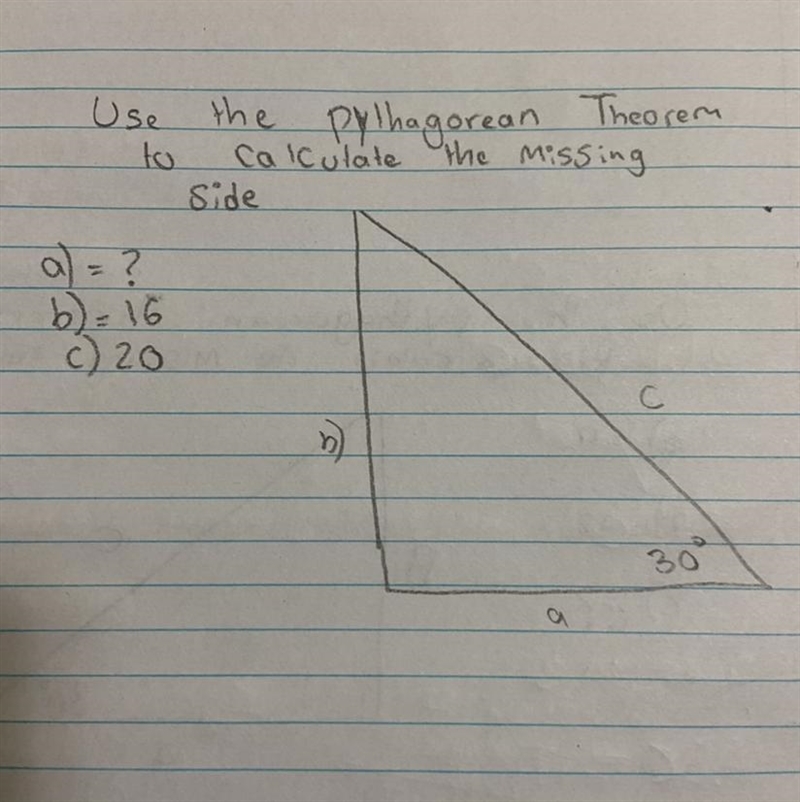 Use the pylhagorean Theorem
to calculate the missing
side
a) = ?
b) = 16
c) 20
c
b)
30°
a